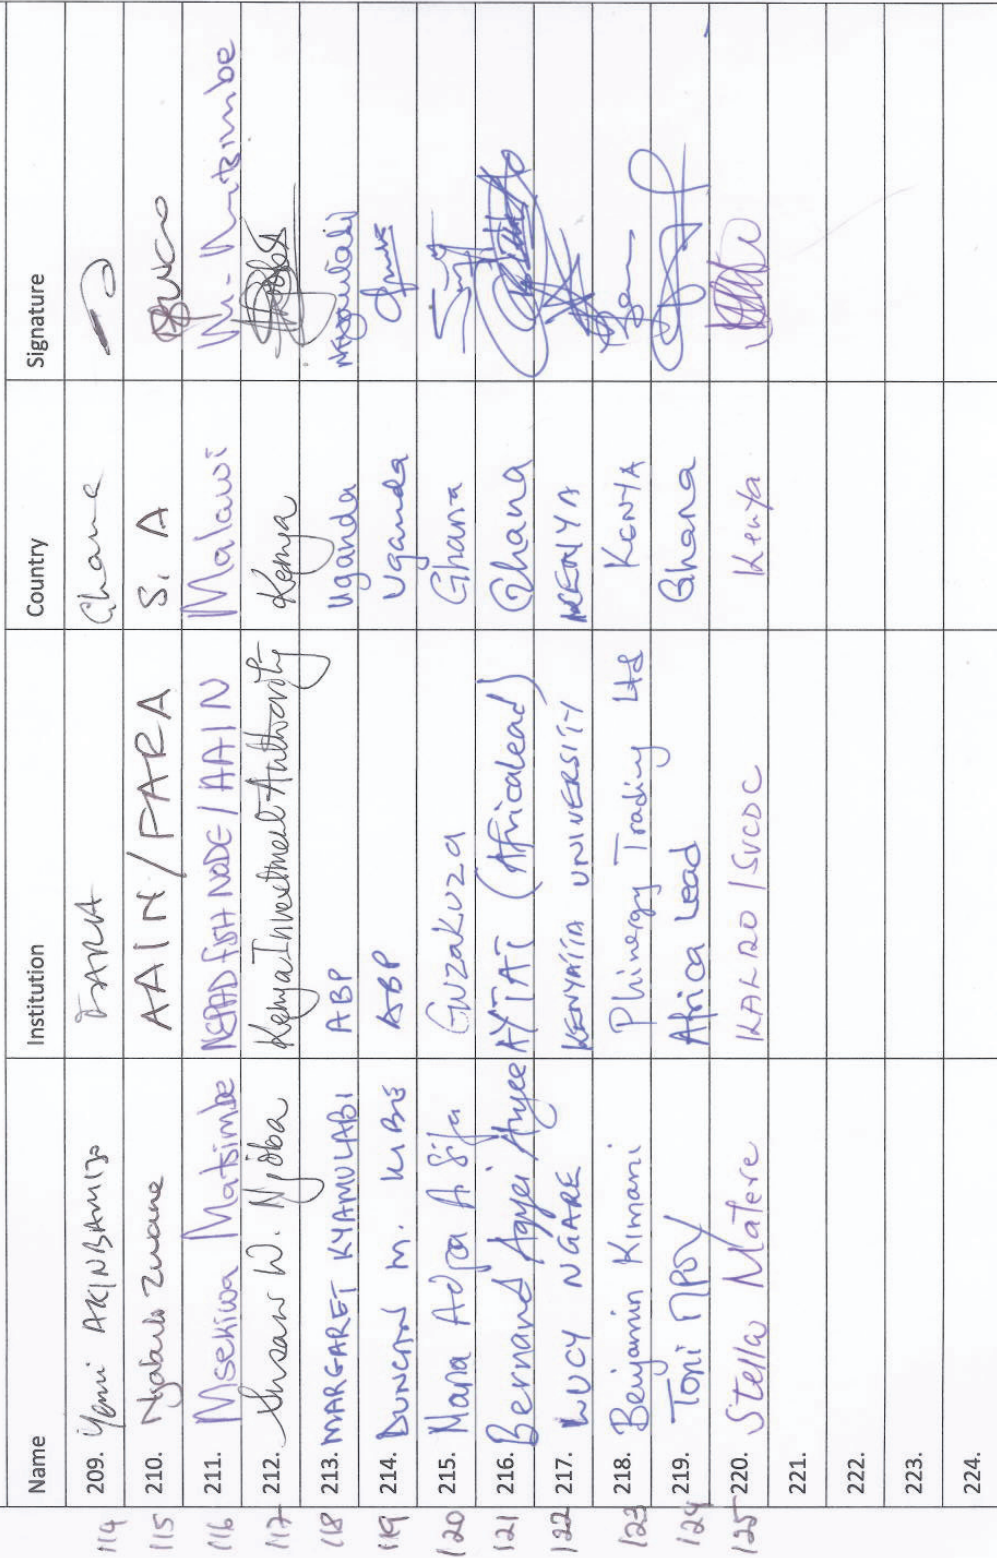 Name Institution Country Signature
114 209. Yemi AKINBAMIJO FARA Ghana
115 210. Zwane AAIN/FARA S. A
116 211. Msekiwa Matsimbe NEPAD FISH NODE/AAIN Malawi M. Matsimbe
117 212. Susan W. Njoba Kenya Investment Authority Kenya
118 213. MARGARET KYAMULABI ABP Uganda
119 214. DUNCAN M. ABP Uganda
120 215. Guzakuza Ghana
121 216. Bernard Agyei AYTAT (Africalead) Ghana
122 217. LUCY NGARE KENYATTA UNIVERSITY KENYA
123 218. Benjamin Kimani Phinergy Trading Ltd KENYA Ben
124 219. Toni Africa Lead Ghana
125 220. Stella Matere KALRO/SVCDC Kenya
221.
222.
223.
224.